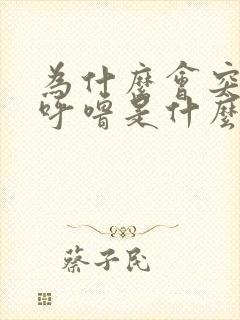 為什麼會突
呼嚕是什麼
蔡子民